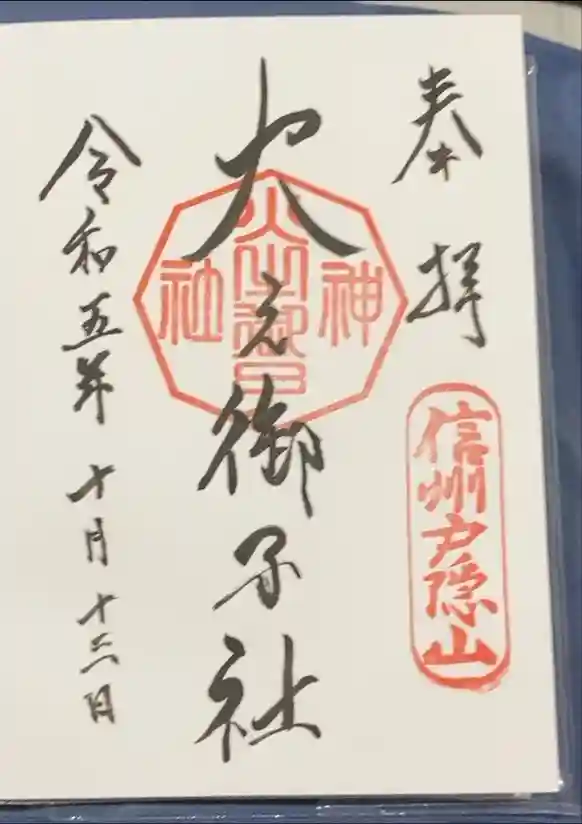 奉拝
信州戸隠山
火之御子社
神
社
令和五年十月十六日